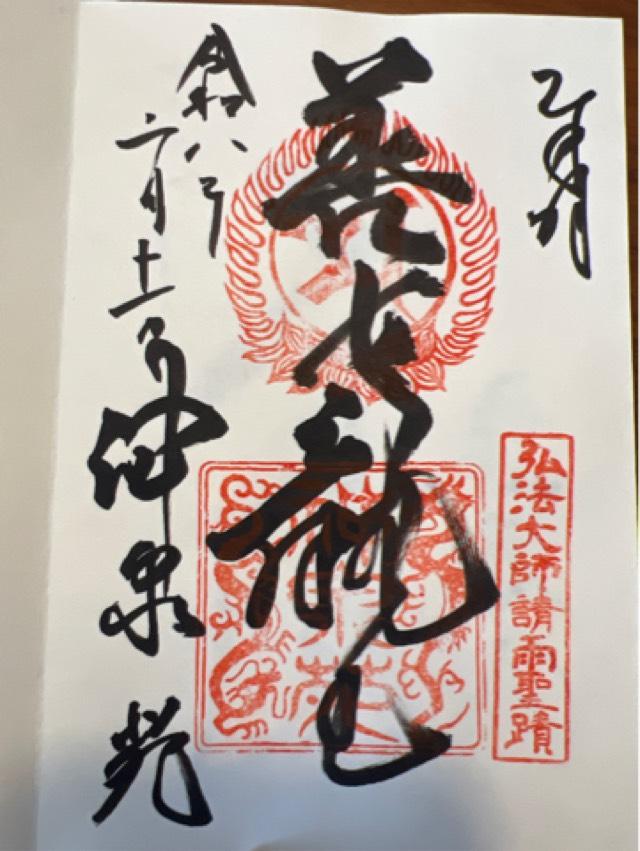 奉拝
弘法大師請雨聖蹟
善女龍王
令和八年
二月十一日
神泉苑